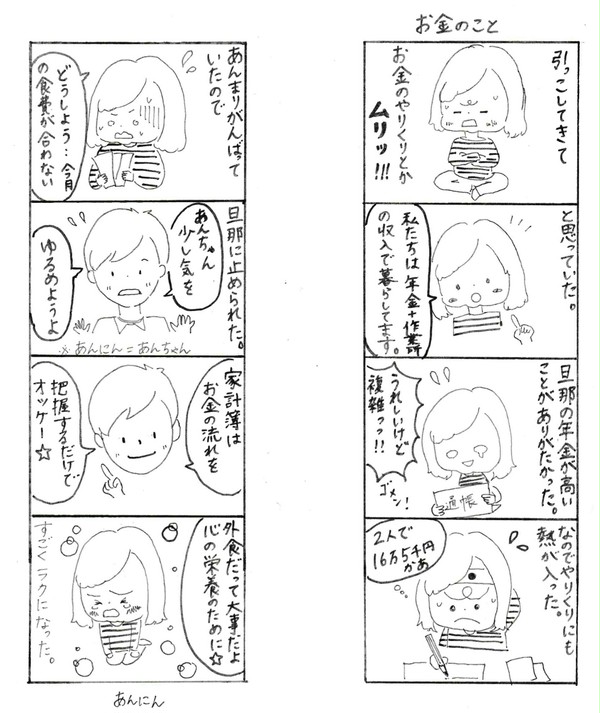 お金のこと
引っこしてきて
お金のやりくりとか
ムリッ!!!
と思っていた。
私たちは年金+作業所
の収入で暮らしてます。
旦那の年金が高い
ことがありがたかった。
うれしいけど
複雑ッッ!!
ゴメン!
通帳
なのでやりくりにも
熱が入った。
2人で
16万5千円
かぁ
あんまりがんばって
いたので
どうしよう…今月
の食費が合わない
旦那に止められた。
あんちゃん
少し気を
ゆるめようよ
※あんにん=あんちゃん
家計簿は
お金の流れを
把握するだけで
オッケー!☆
外食だって大事だよ
心の栄養のために☆
すごくラクになった。
あんにん